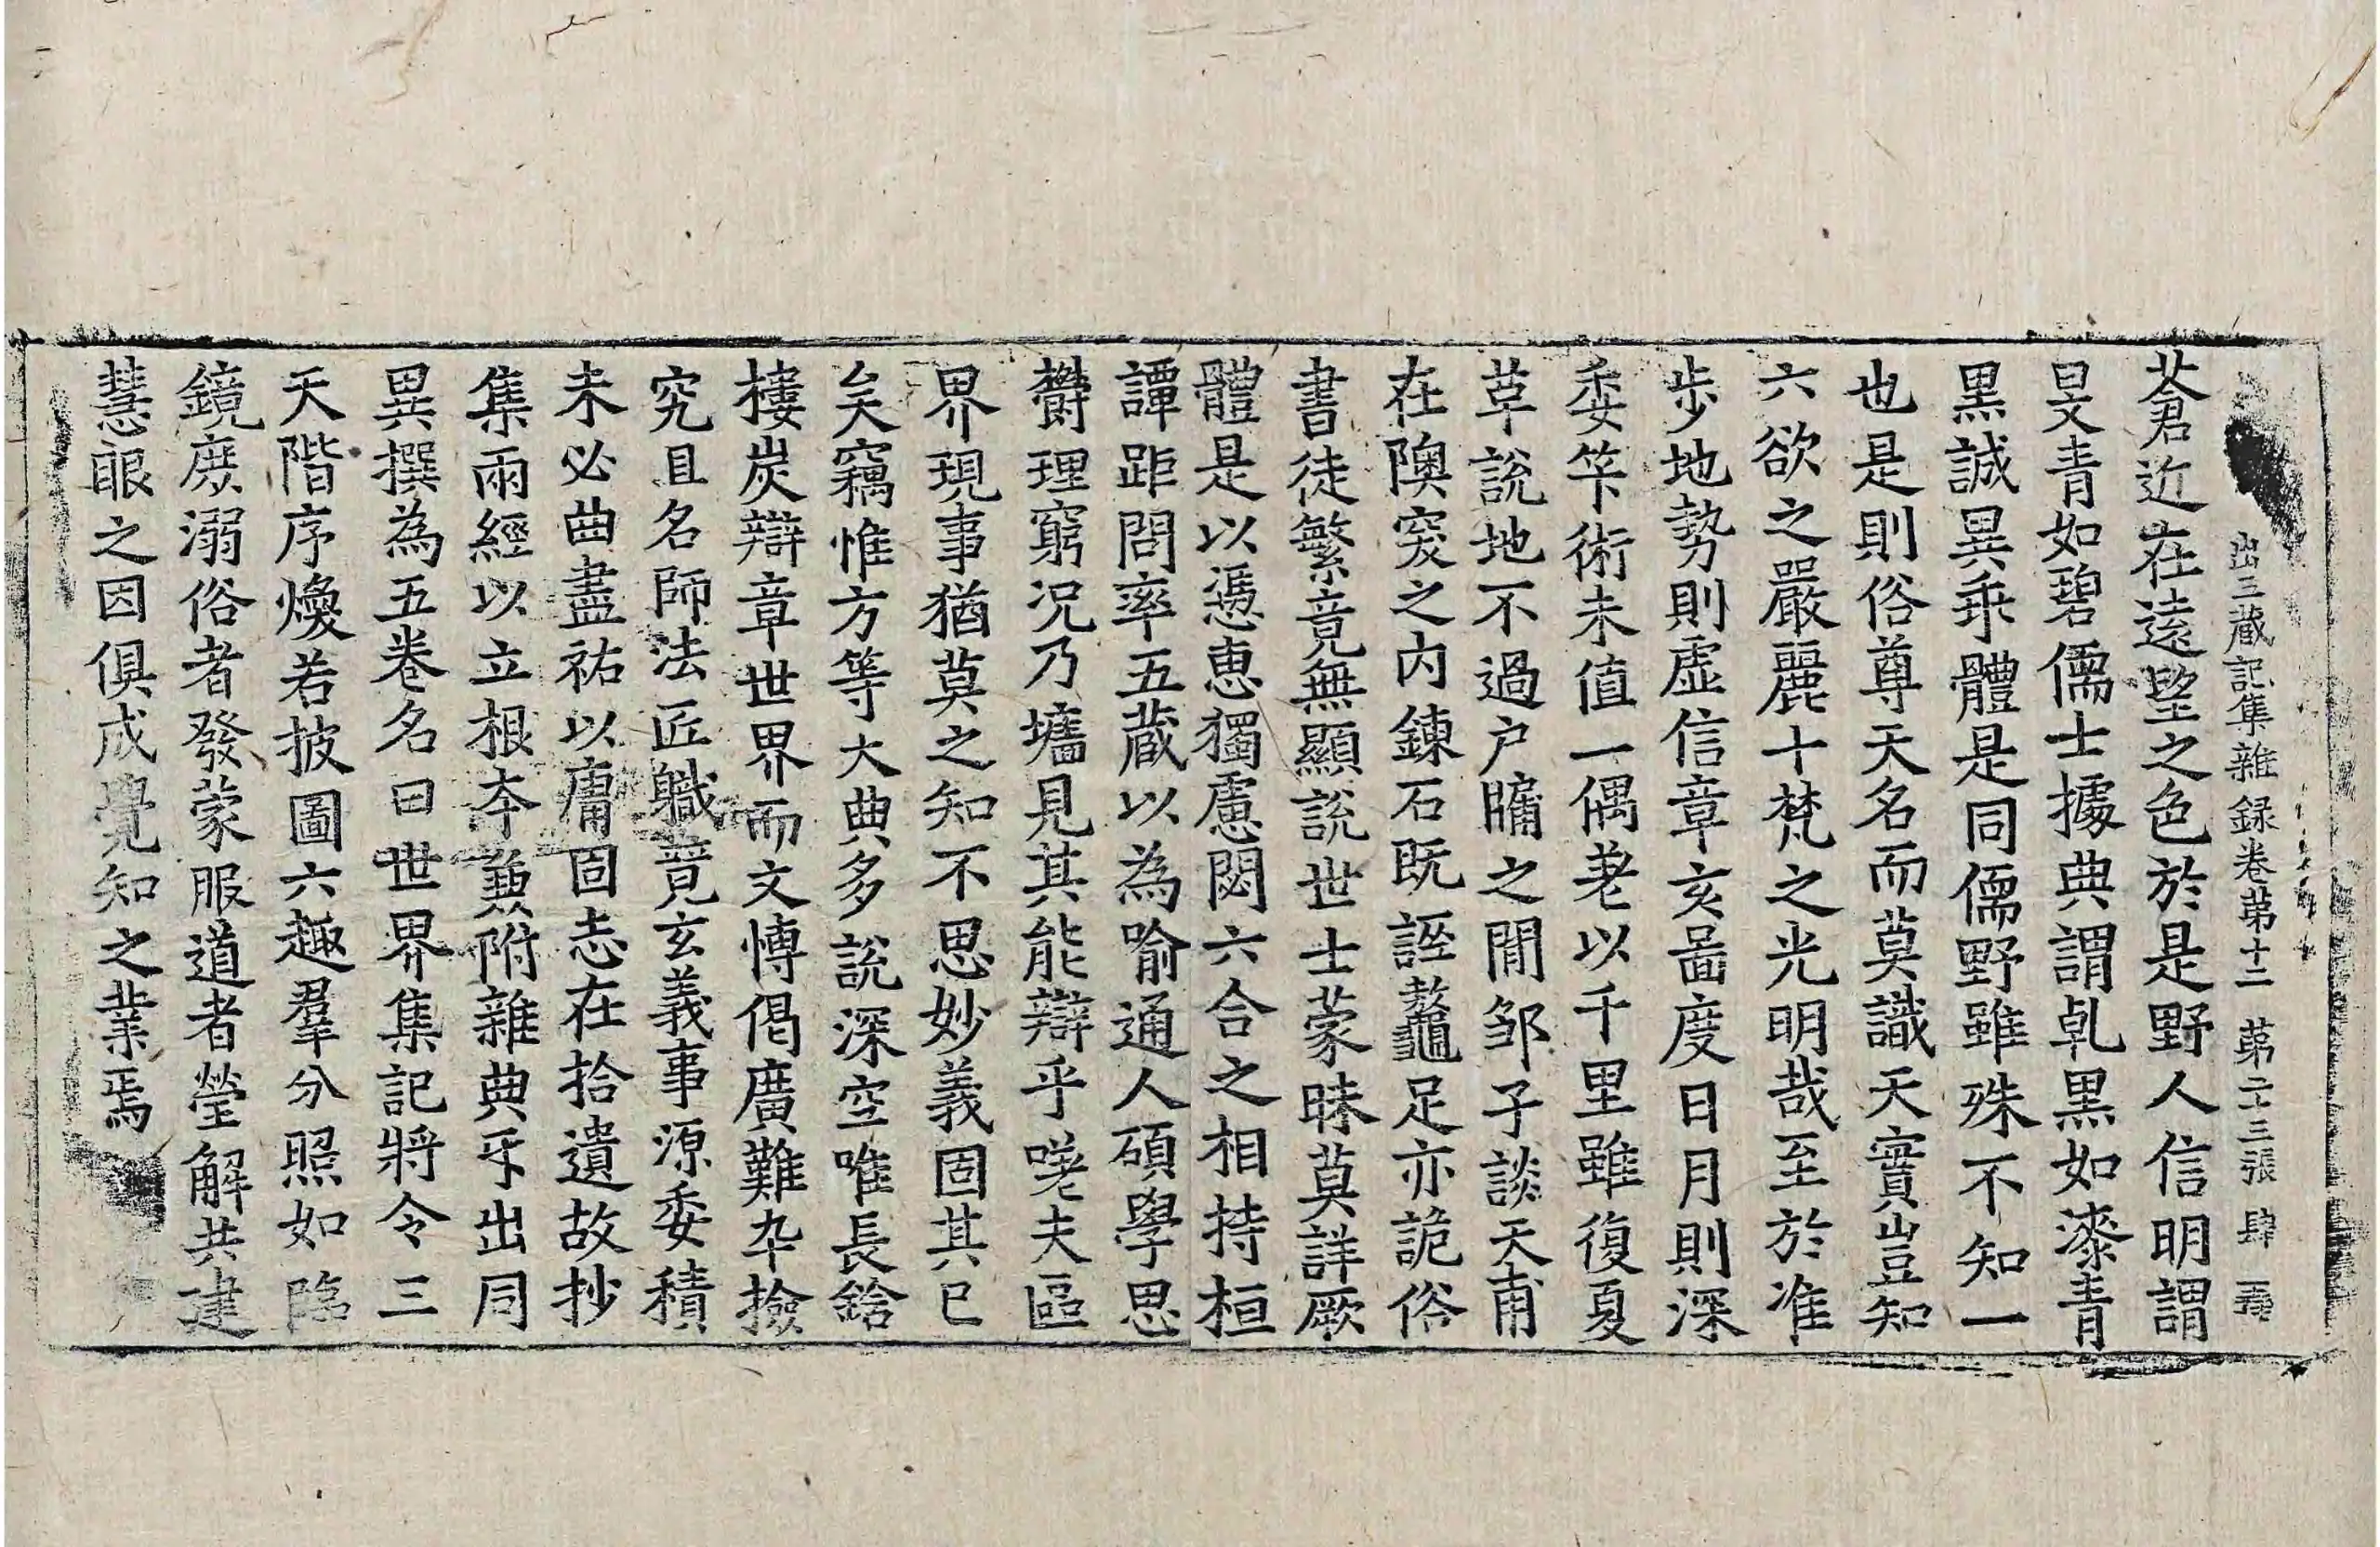 出三藏記集雜録卷苐十二 苐二十三張 肆
蒼近在遠望之色於是野人信明謂
旻青如碧儒士據典謂乹黒如漆青
黒誠異乗體是同儒野雖殊不知一
也是則俗尊天名而莫識天實豈知
六欲之嚴麗十梵之光明哉至於准
步地勢則虛信章亥啚度日月則深
委竿術未值一偶差以千里雖復夏
革説地不過户牖之閒邹子談天甫
在隩窔之内鍊石既誣鼇足亦詭俗
書徒繁竟無顯説世士蒙昧莫詳厥
體是以憑惠獨慮閎六合之相持桓
譚距問率五藏以為喻通人碩學思
欝理窮況乃墻見其能辯乎嗟夫區
界現事猶莫之知不思妙義固其已
矣竊惟方等大典多説深空唯長鋡
樓炭辯章世界而文博偈廣難卒撿
究且名師法匠職竟玄義事源委積
未必曲盡祐以庸固志在拾遺故抄
集兩經以立根夲兼附雜典㸦出同
異撰為五卷名曰世界集記將令三
天階序煥若披圖六趣羣分照如臨
鏡庶溺俗者發蒙服道者瑩解共建
慧眼之因俱成覺知之業焉